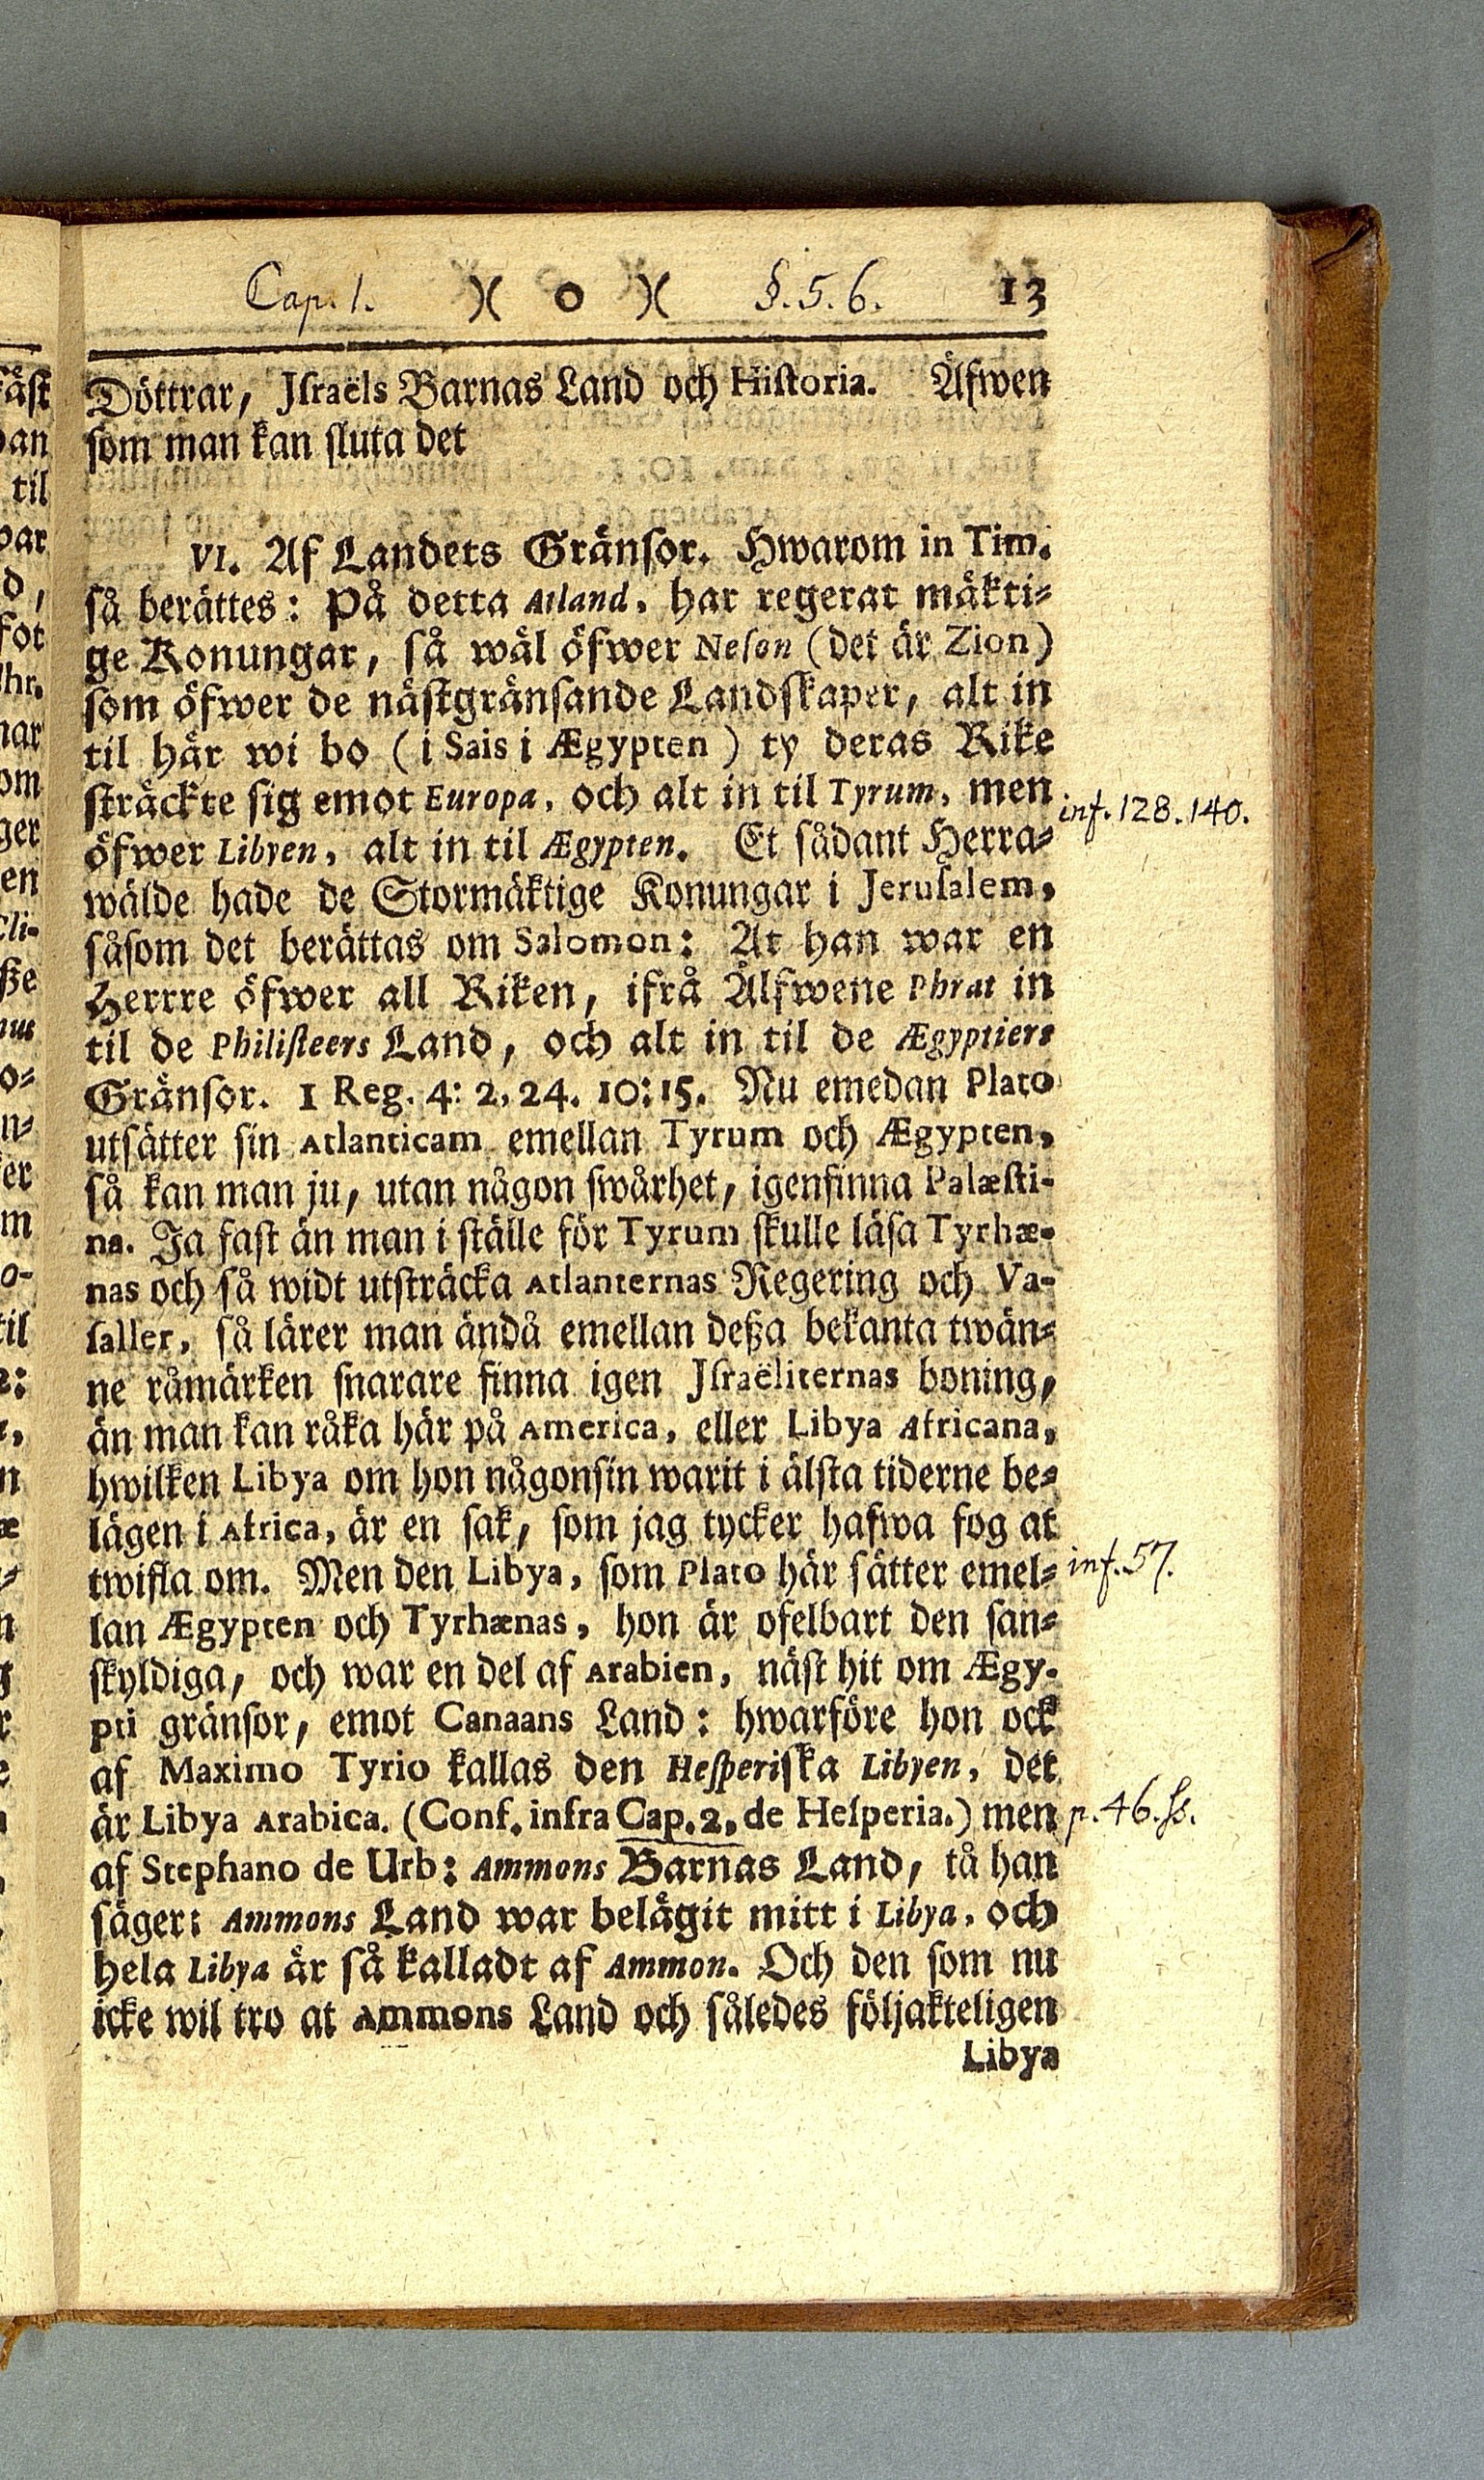 Cap. 1. )( o )( §. 5. 6. 13
Döttrar, Jſraëls Barnas Land och Hiſtoria. Äfwen
ſom man kan ſluta det
VI. Af Landets Gränſor. Hwarom in Tim.
ſå berättes: På detta Atland, har regerat mäkti⸗
ge Konungar, ſå wäl öfwer Neſon (det är Zion)
ſom öfwer de näſtgränſande Landſkaper, alt in
til här wi bo (i Sais i Ægypten) ty deras Rike
ſträckte ſig emot Europa, och alt in til Tyrum, men
inf. 128. 140.
öfwer Libyen, alt in til Ægypten. Et ſådant Herra⸗
wälde hade de Stormäktige Konungar i Jeruſalem,
ſåſom det berättas om Salomon: At han war en
Herrre öfwer all Riken, ifrå Älfwene Phrat in
til de Philiſteers Land, och alt in til de Ægyptiers
Gränſor. 1 Reg. 4: 2, 24. 10: 15. Nu emedan Plato
utſätter ſin Atlanticam emellan Tyrum och Ægypten,
ſå kan man ju, utan någon ſwårhet, igenfinna Palæſti-
na. Ja faſt än man i ſtälle för Tyrum ſkulle läſa Tyrhæ-
nas och ſå widt utſträcka Atlanternas Regering och Va-
ſaller, ſå lärer man ändå emellan deßa bekanta twän⸗
ne råmärken ſnarare finna igen Jſraëliternas boning,
än man kan råka här på America, eller Libya Africana,
hwilken Libya om hon någonſin warit i älſta tiderne be⸗
lägen i Africa, är en ſak, ſom jag tycker hafwa fog at
twifla om. Men den Libya, ſom Plato här ſätter emel⸗
inf. 57.
lan Ægypten och Tyrhænas, hon är ofelbart den ſan⸗
ſkyldiga, och war en del af Arabien, näſt hit om Ægy-
pti gränſor, emot Canaans Land: hwarföre hon ock
af Maximo Tyrio kallas den Heſperiſka Libyen, det
är Libya Arabica. (Conf. infra Cap. 2, de Heſperia.) men
p. 46. ſs.
af Stephano de Urb: Ammons Barnas Land, tå han
ſäger: Ammons Land war belägit mitt i Libya, och
hela Libya är ſå kalladt af Ammon. Och den ſom nu
icke wil tro at Ammons Land och ſåledes följakteligen
Libya